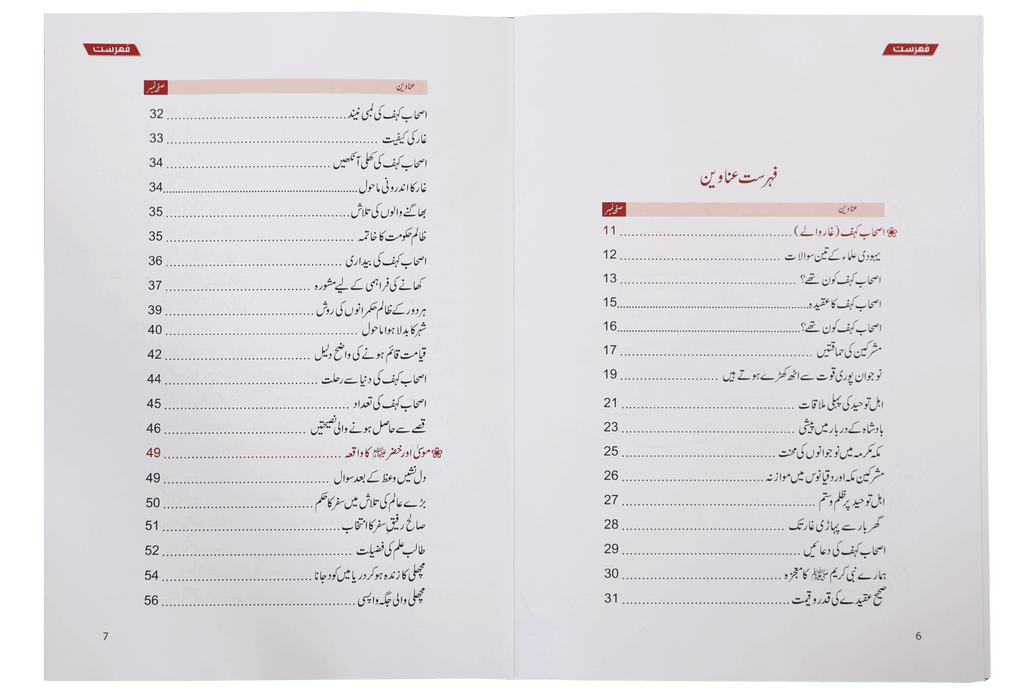 فہرست
فہرست عناوین
عناوین صفحہ نمبر
اصحاب کہف (غار والے) 11
یہودی علماء کے تین سوالات 12
اصحاب کہف کون تھے؟ 13
اصحاب کہف کا عقیدہ 15
اصحاب کہف کون تھے؟ 16
مشرکین کی حماقتیں 17
نوجوان پوری قوت سے اٹھ کھڑے ہوتے ہیں 19
اہل توحید کی پہلی ملاقات 21
بادشاہ کے دربار میں پیشی 23
مکہ مکرمہ میں نوجوانوں کی محنت 25
مشرکین مکہ اور دقیانوس میں موازنہ 26
اہل توحید پر ظلم و ستم 27
گھر بار سے پہاڑی غار تک 28
اصحاب کہف کی دعائیں 29
ہمارے نبی کریم ﷺ کا معجزہ 30
صحیح عقیدے کی قدر و قیمت 31
6
فہرست
عناوین صفحہ نمبر
اصحاب کہف کی لمبی نیند 32
غار کی کیفیت 33
اصحاب کہف کی کھلی آنکھیں 34
غار کا اندرونی ماحول 34
بھاگنے والوں کی تلاش 35
ظالم حکومت کا خاتمہ 35
اصحاب کہف کی بیداری 36
کھانے کی فراہمی کے لیے مشورہ 37
ہر دور کے ظالم حکمرانوں کی روش 39
شہر کا بدلا ہوا ماحول 40
قیامت قائم ہونے کی واضح دلیل 42
اصحاب کہف کی دنیا سے رحلت 44
اصحاب کہف کی تعداد 45
قصے سے حاصل ہونے والی نصیحتیں 46
موسیٰ اور خضر ﷺ کا واقعہ 49
دل نشیں وعظ کے بعد سوال 49
بڑے عالم کی تلاش میں سفر کا حکم 50
صالح رفیق سفر کا انتخاب 51
طالب علم کی فضیلت 52
مچھلی کا زندہ ہو کر دریا میں کود جانا 54
مچھلی والی جگہ واپسی 56
7